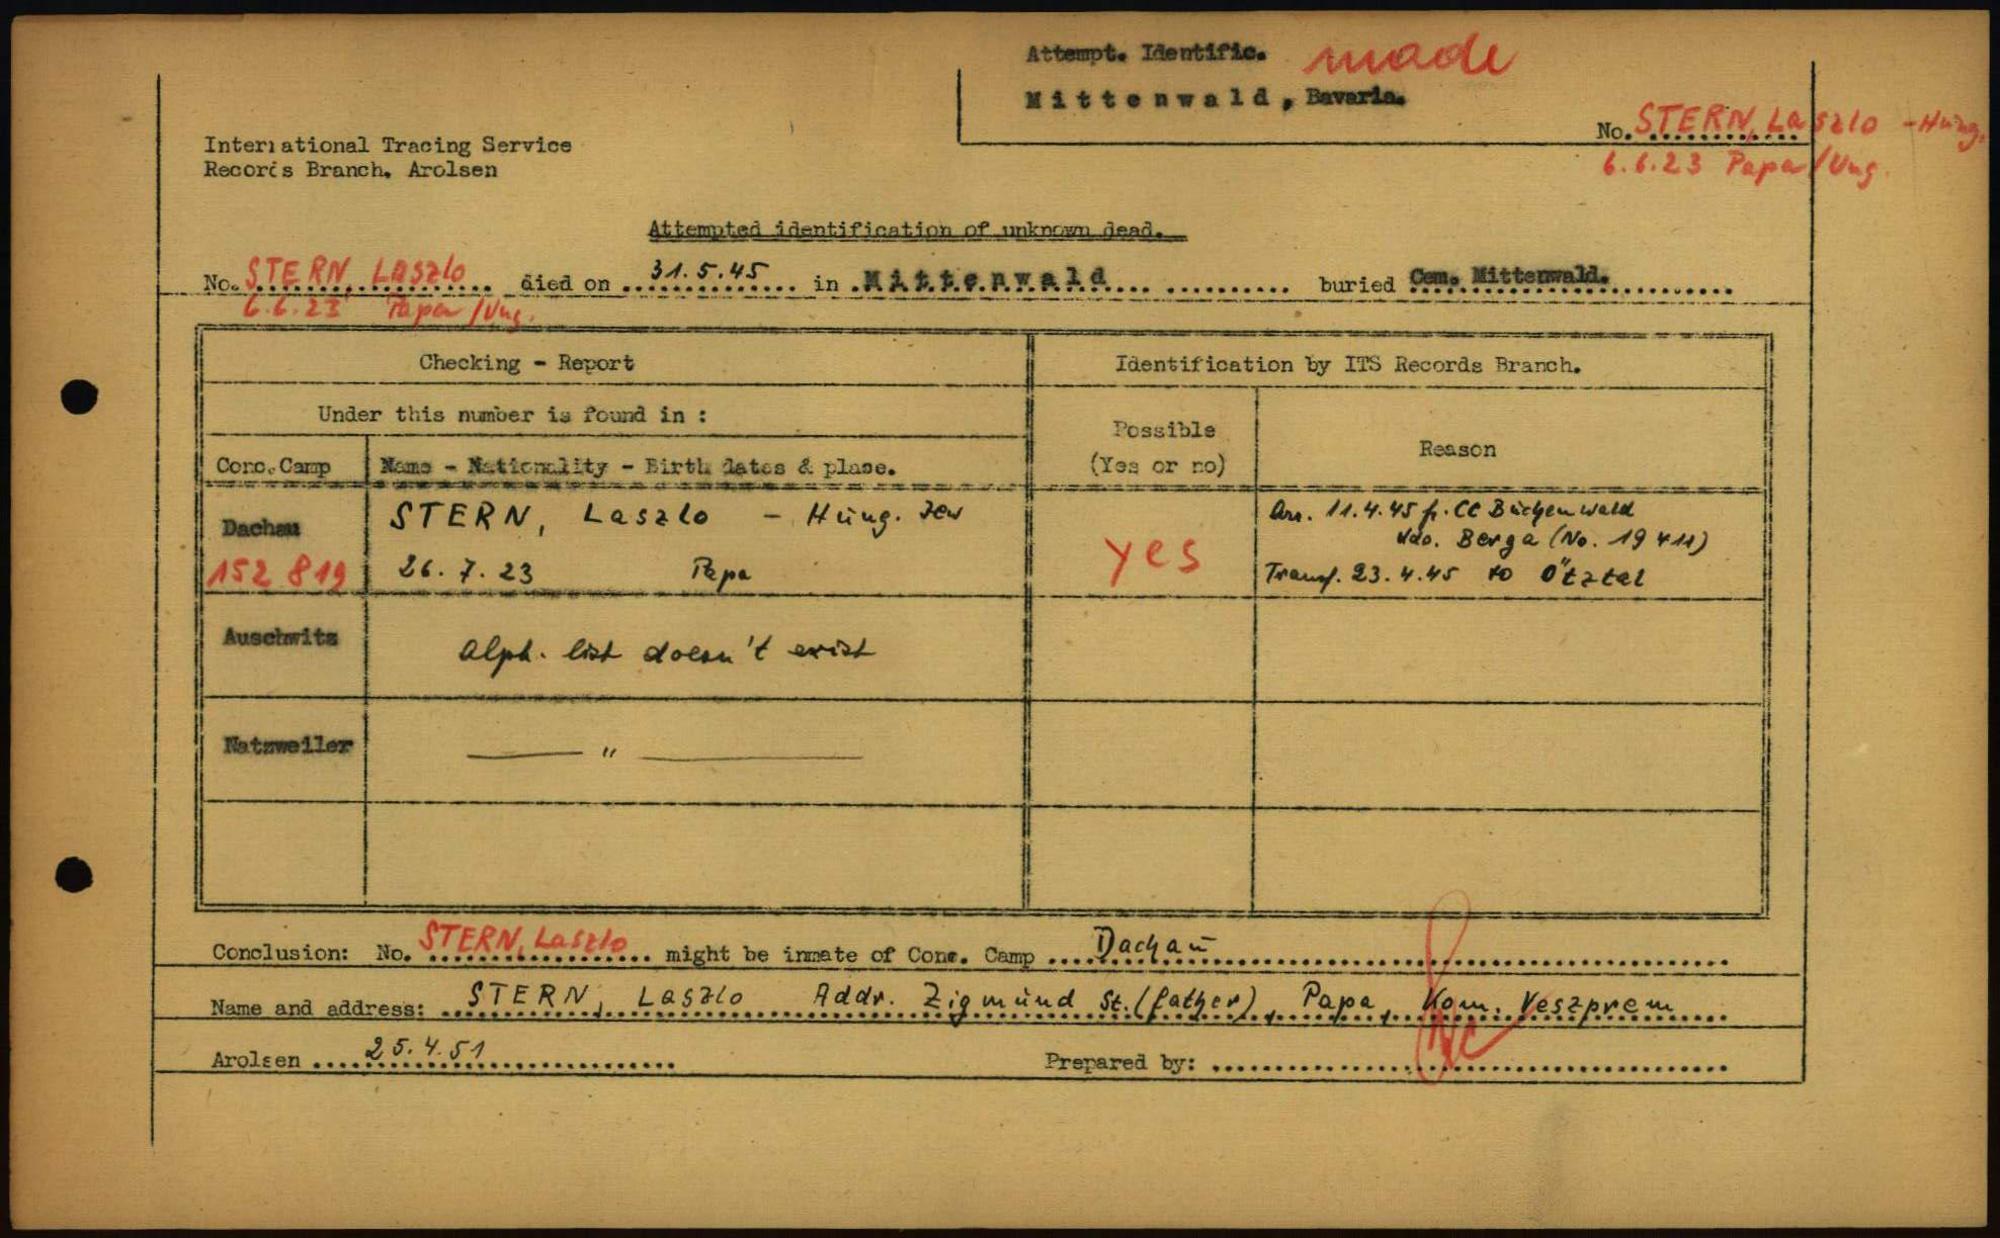 Attempt. Identific. made
Mittenwald, Bavaria.
No. STERN, Laszlo - Hung.
6.6.23 Papa/Ung.
International Tracing Service
Records Branch, Arolsen
Attempted identification of unknown dead.
No. STERN, Laszlo died on 31.5.45 in Mittenwald buried Cem. Mittenwald.
6.6.23 Papa/Ung.
Checking - Report
Identification by ITS Records Branch.
Under this number is found in :
Possible
(Yes or no)
Reason
Conc.Camp
Name - Nationality - Birth dates & place.
Dachau
152 819
STERN, Laszlo - Hung. Jew
26.7.23 Papa
yes
Arr. 11.4.45 fr. CC Buchenwald
Kdo. Berga (No. 19 411)
Transf. 23.4.45 to Ötztal
Auschwitz
Alph. list doesn't exist
Natzweiler
— " —
Conclusion: No. STERN, Laszlo might be inmate of Conc. Camp Dachau
Name and address: STERN, Laszlo Addr. Zigmund St. (father), Papa, Kom. Veszprem
Arolsen 25.4.51
Prepared by: